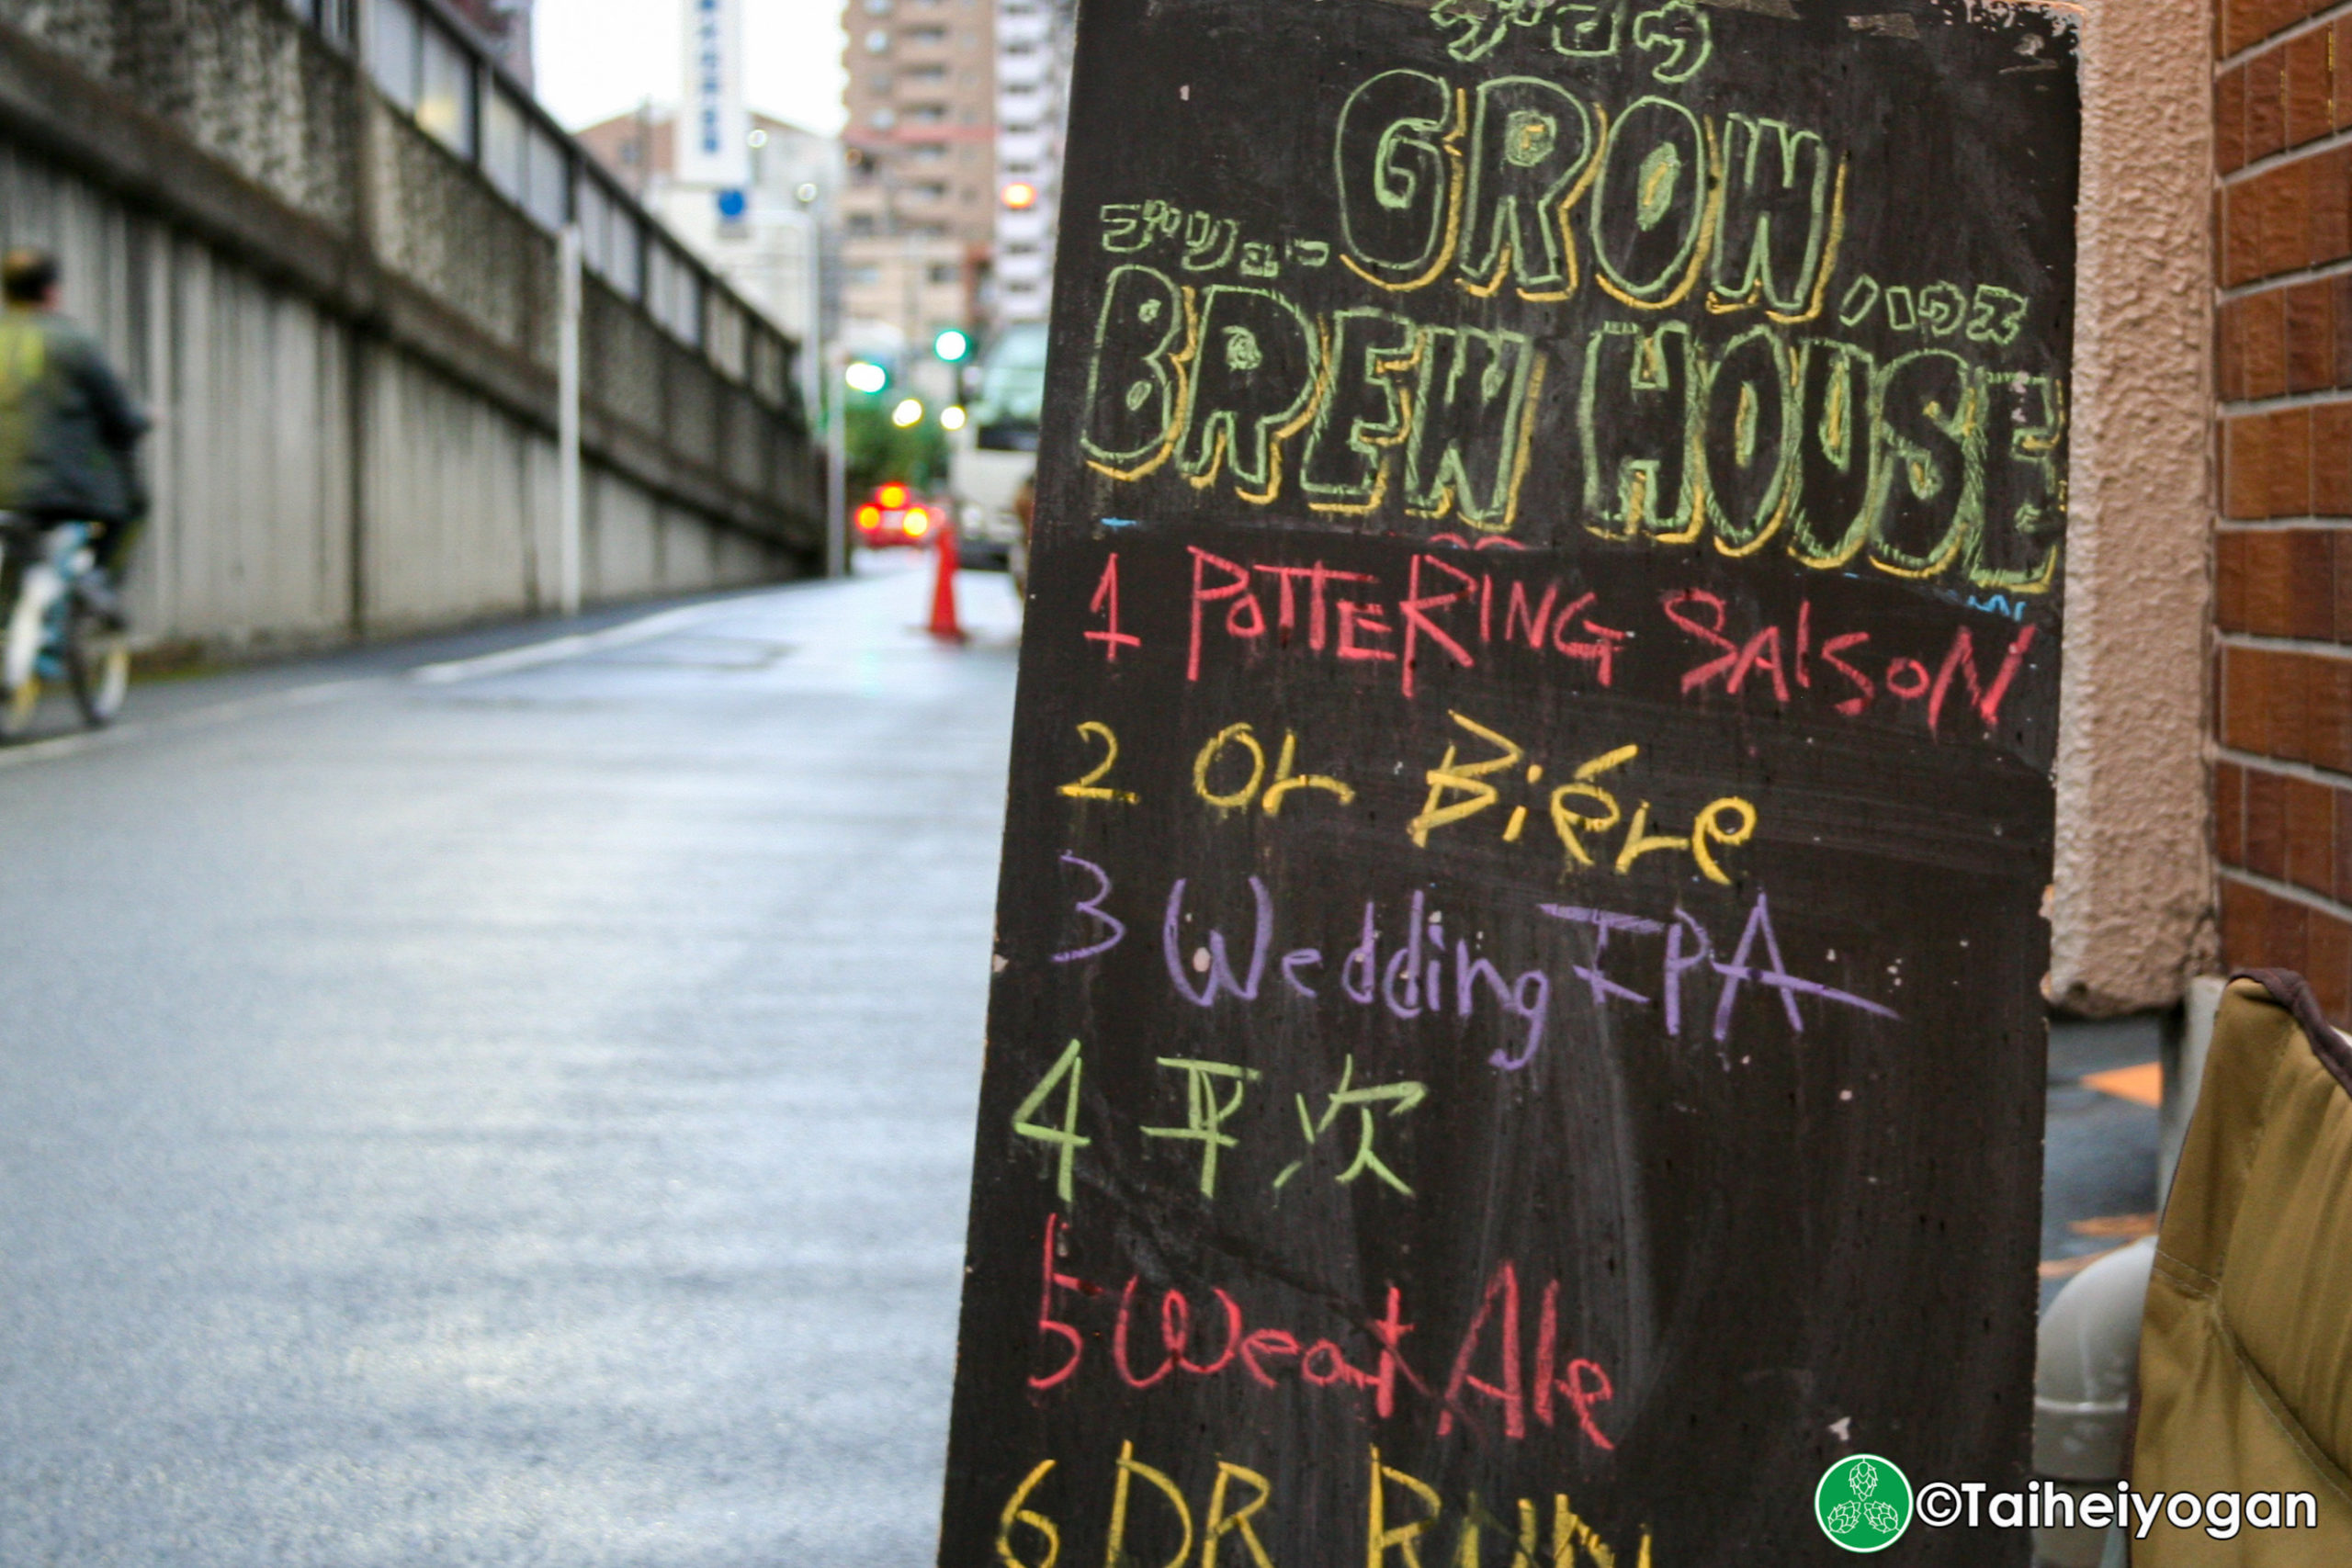 グロウ
GROW
ブリュー ハウス
BREW HOUSE
1 POTTERING SAISON
2 Or Biére
3 Wedding IPA
4 平次
5 Weat Ale
6 DR RUN
©Taiheiyogan